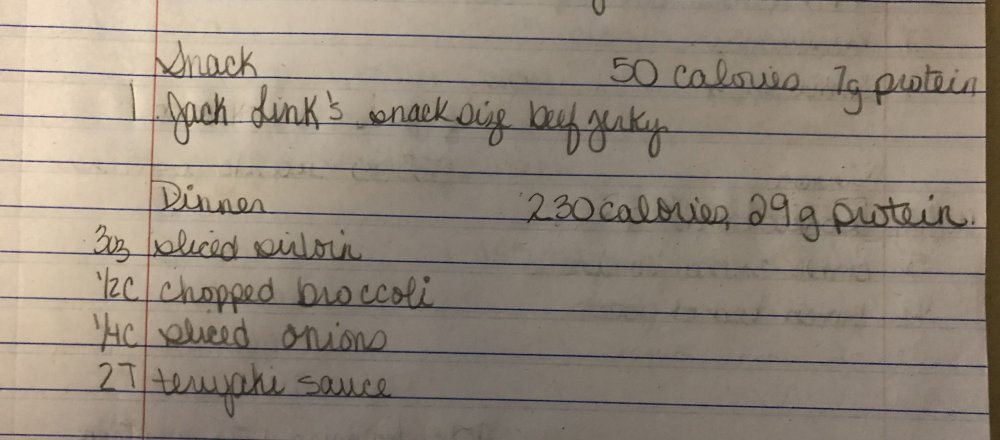 Snack 50 calories 7g protein
1 Jack Link's snack size beef jerky
Dinner 230 calories, 29g protein.
3oz sliced sirloin
1/2C chopped broccoli
1/4C sliced onions
2T teriyaki sauce